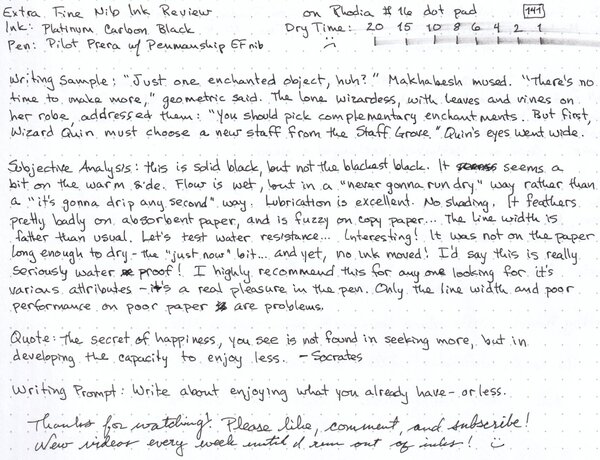 Extra Fine Nib Ink Review on Rhodia #16 dot pad 141
Ink: Platinum Carbon Black Dry Time: 20 15 10 8 6 4 2 1
Pen: Pilot Prera w/ Penmanship EF nib
Writing Sample: "Just one enchanted object, huh?" Makhabesh mused. "There's no
time to make more," geometric said. The lone wizardess, with leaves and vines on
her robe, addressed them: "You should pick complementary enchantments. But first,
Wizard Quin must choose a new staff from the Staff Grove." Quin's eyes went wide.
Subjective Analysis: this is solid black, but not the blackest black. It seems a
bit on the warm side. Flow is wet, but in a "never gonna run dry" way rather than
a "it's gonna drip any second" way. Lubrication is excellent. No shading. It feathers
pretty badly on absorbent paper, and is fuzzy on copy paper... The line width is
fatter than usual. Let's test water resistance... Interesting! It was not on the paper
long enough to dry - the "just now" bit... and yet, no ink moved! I'd say this is really
seriously water proof! I highly recommend this for any one looking for it's
various attributes - it's a real pleasure in the pen. Only the line width and poor
performance on poor paper are problems.
Quote: The secret of happiness, you see is not found in seeking more, but in
developing the capacity to enjoy less. - Socrates
Writing Prompt: Write about enjoying what you already have - or less.
Thanks for watching! Please like, comment, and subscribe!
New videos every week until I run out of inks! :)